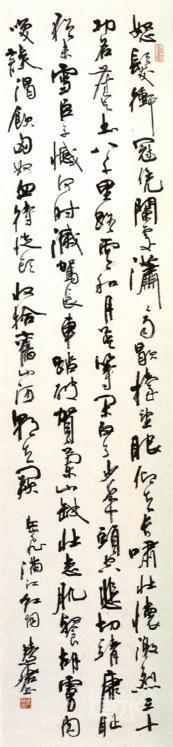 怒髮衝冠凭闌處瀟瀟雨歇擡望眼仰天長嘯壯懷激烈三十
功名塵与土八千里路雲和月莫等閒白了少年頭空悲切靖康恥
猶未雪臣子憾何時滅駕長車踏破賀蘭山缺壯志飢餐胡虜肉
笑談渴飲匈奴血待從頭收拾舊山河朝天闕 岳飛滿江紅詞